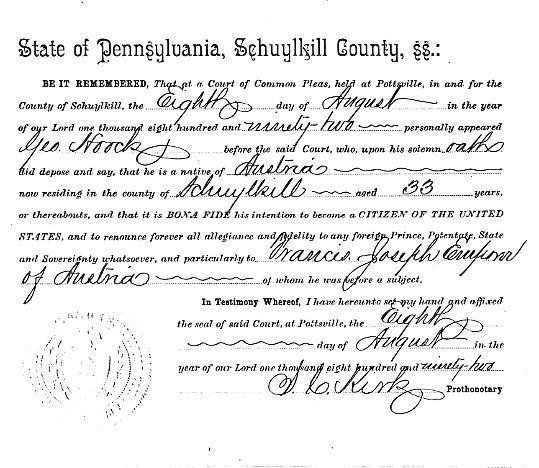 State of Pennsylvania, Schuylkill County, ss.:
BE IT REMEMBERED, That at a Court of Common Pleas, held at Pottsville, in and for the
County of Schuylkill, the Eighth day of August in the year
of our Lord one thousand eight hundred and ninety-two personally appeared
Geo. Noock before the said Court, who, upon his solemn oath
did depose and say, that he is a native of Austria
now residing in the county of Schuylkill aged 33 years,
or thereabouts, and that it is BONA FIDE his intention to become a CITIZEN OF THE UNITED
STATES, and to renounce forever all allegiance and fidelity to any foreign Prince, Potentate, State
and Sovereignty whatsoever, and particularly to Francis Joseph Emperor
of Austria of whom he was before a subject.
In Testimony Whereof, I have hereunto set my hand and affixed
the seal of said Court, at Pottsville, the Eighth
day of August in the
year of our Lord one thousand eight hundred and ninety-two
S. C. Kirk Prothonotary